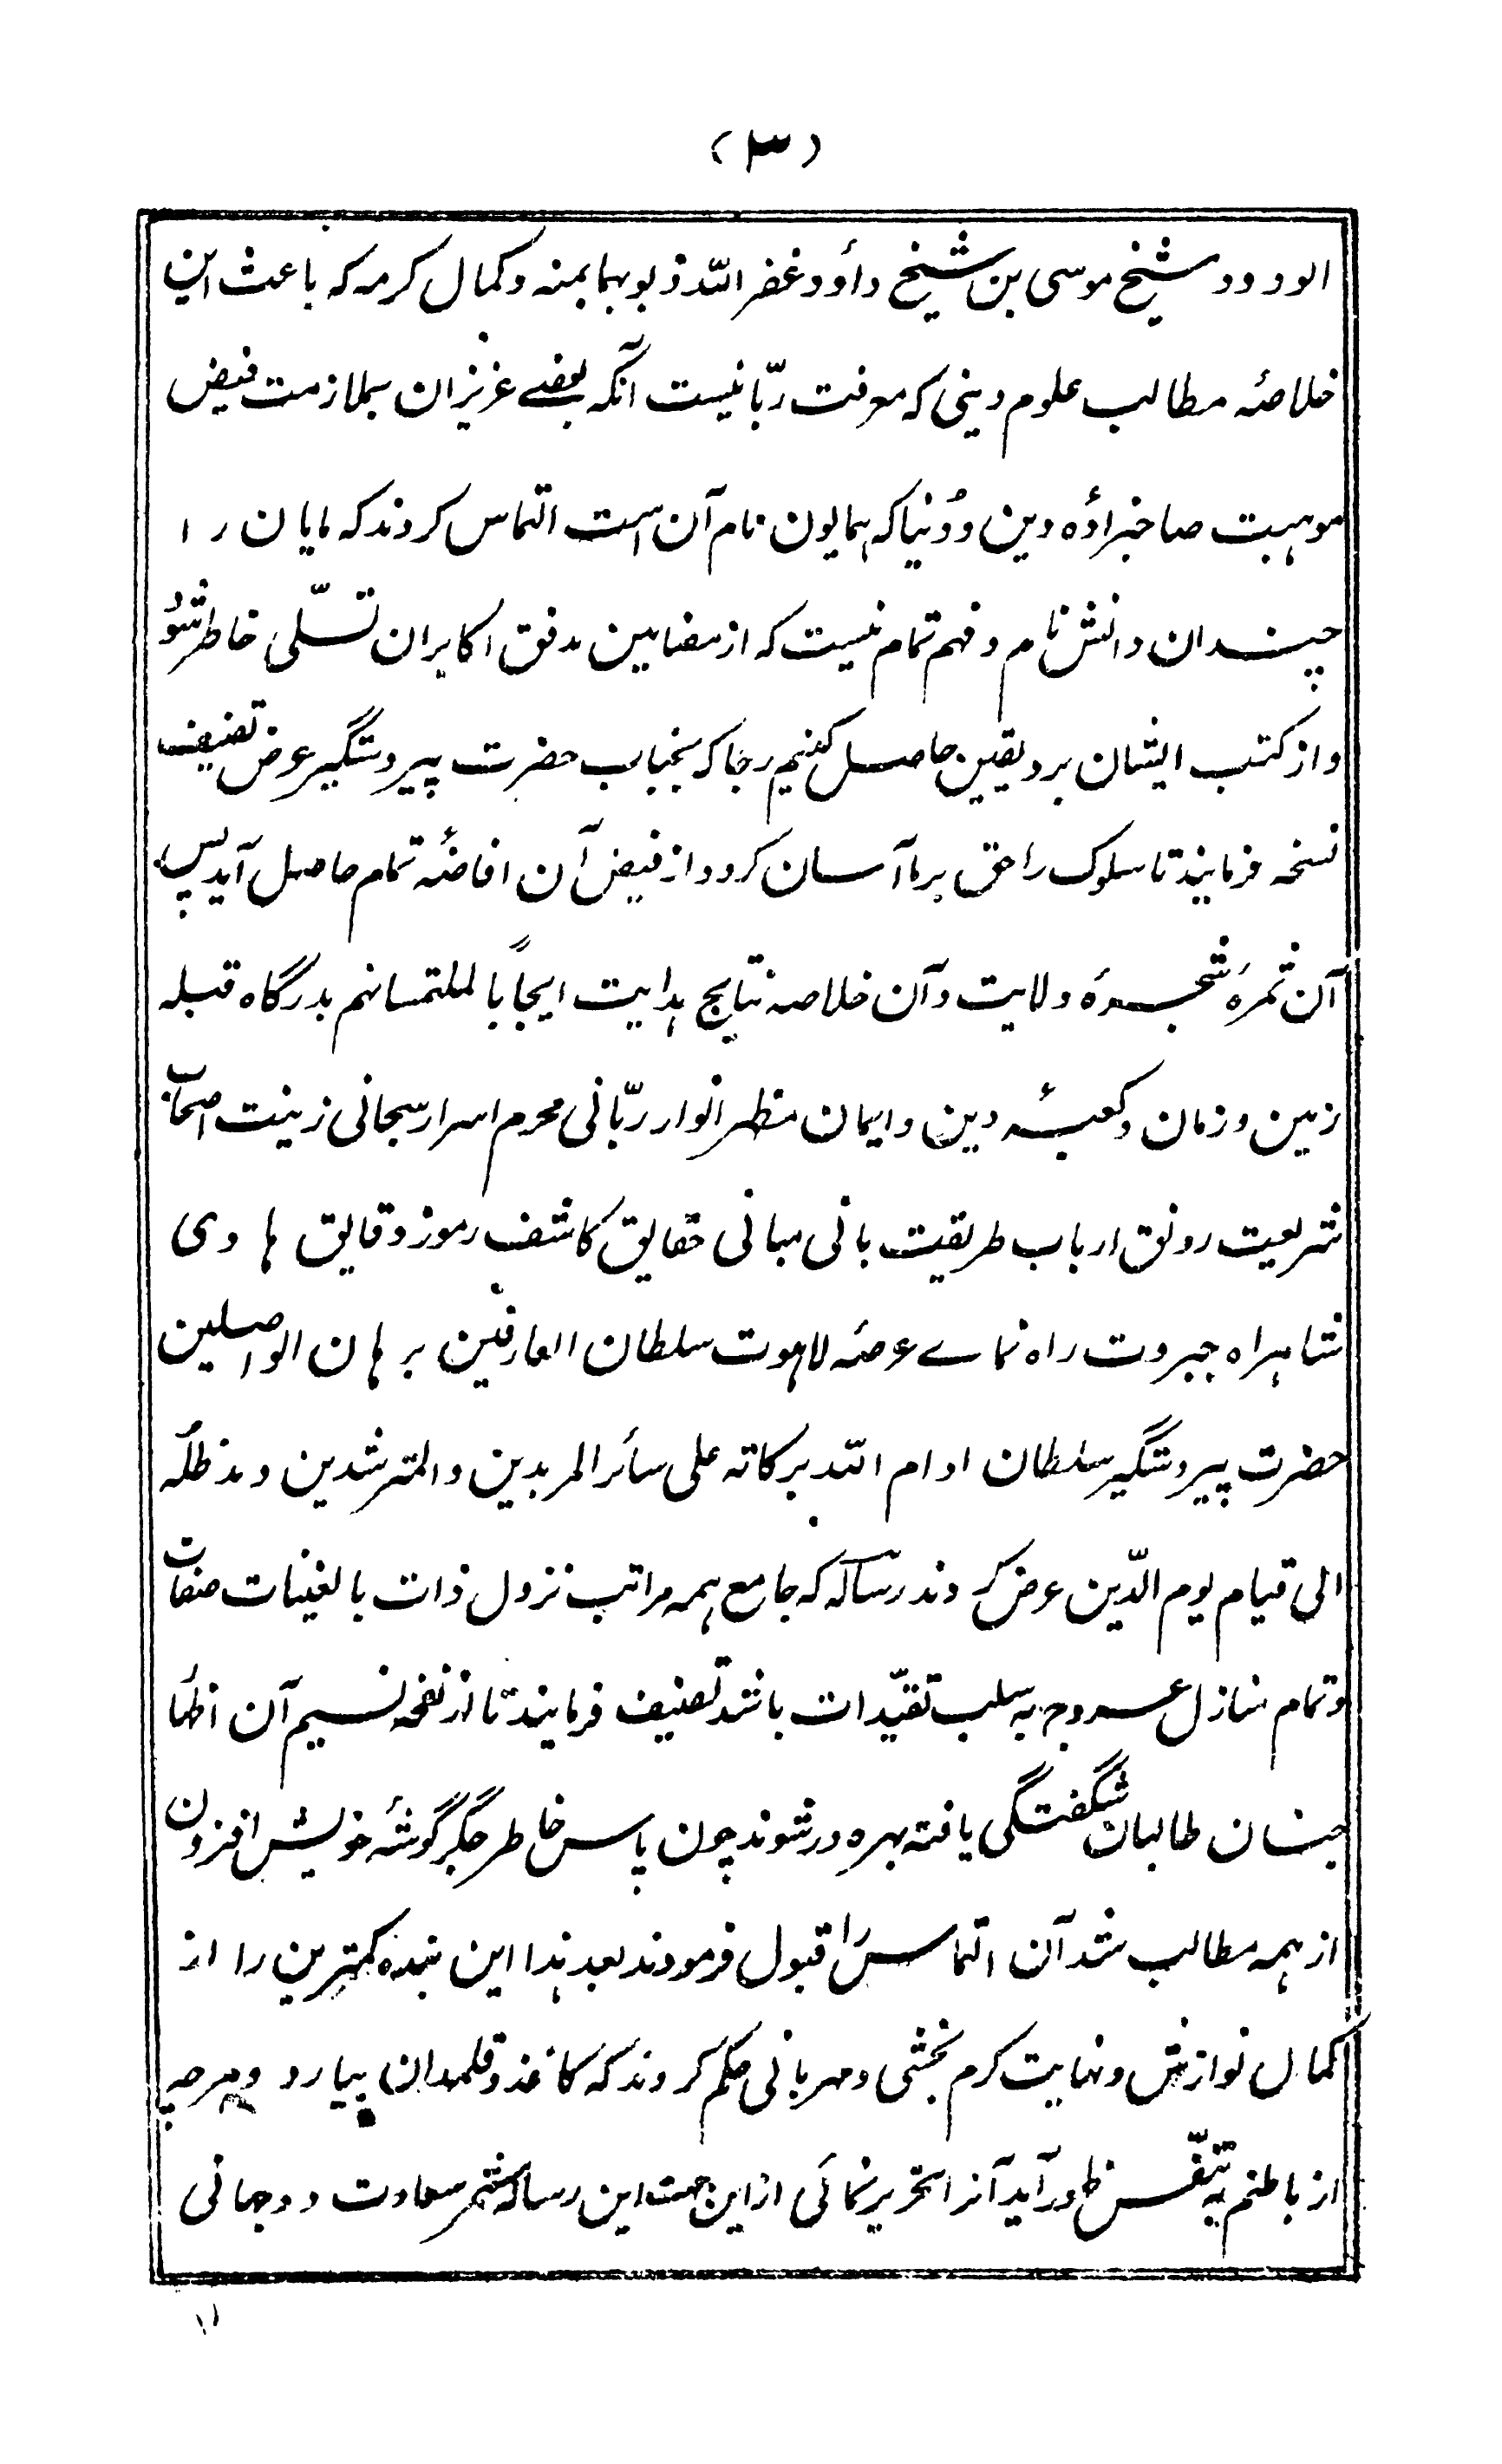 (۳)
الودود شیخ موسی بن شیخ داؤد غفر اللہ ذنوبہما بمنہ وکمال کرمہ کہ باعث این
خلاصۂ مطالب علوم دینی کہ معرفت ربّانیست آنکہ بعضے عزیزان بملازمت فیض
موہبت صاحبزادۂ دین و دُنیا کہ ہمایون نام آن است التماس کردند کہ مایان را
چندان دانش نام و فہم تمام نیست کہ از مضامین مدقق اکابران تسلّی خاطر شوُد
و از کتب ایشان برد یقین حاصل کنیم رجا کہ بجناب حضرت پیر دستگیر عرض تصنیف
نسخہ فرمایند تا سلوک راحق برما آسان کرود از فیض آن افاضۂ تمام حاصل آید پس
آن ثمرۂ شجرۂ ولایت و آن خلاصہ نتایج ہدایت ایجاباً لملتمساتہم بدرگاہ قبلہ
زمین و زمان و کعبۂ دین و ایمان مظہر انوار ربّانی محرم اسرار سبحانی زینت اصحاب
شریعت رونق ارباب طریقت بانی مبانی حقایق کاشف رموز دقایق ہادی
شاہراہ جبروت راہ نماے عرصۂ لاہوت سلطان العارفین برہان الواصلین
حضرت پیر دستگیر سلطان ادام اللہ برکاتہ علی سائر المریدین والمترشدین و مد ظلہ
الی قیام یوم الدّین عرض کردند رسالہ کہ جامع ہمہ مراتب نزول ذات بالغینات صفات
و تمام منازل عروج بہ سلب تقیّدات باشد تصنیف فرمایند تا از نفحہ نسیم آن اظمأ
جنان طالبان شگفتگی یافتہ بہرہ ور شوند چون پاس خاطر جگر گوشۂ خویش افزون
از ہمہ مطالب شد آن التماس را قبول فرمودند بعد ہذا این بندہ کمترین را از
کمال نوازش و نہایت کرم بخشی و مہربانی حکم کردند کہ کاغذ و قلمدان بیارد و ہرچہ
از باطنم بہ تنفّس ظہور آید آنرا تحریر نمائی ازاین جہت این رسالہ مثمر سعادت دوجہانی
۱۱